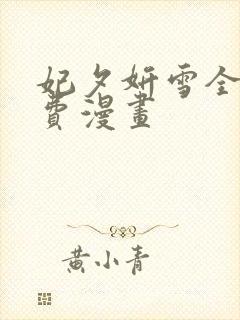 妃夕妍雪全
費漫畫
黃小青